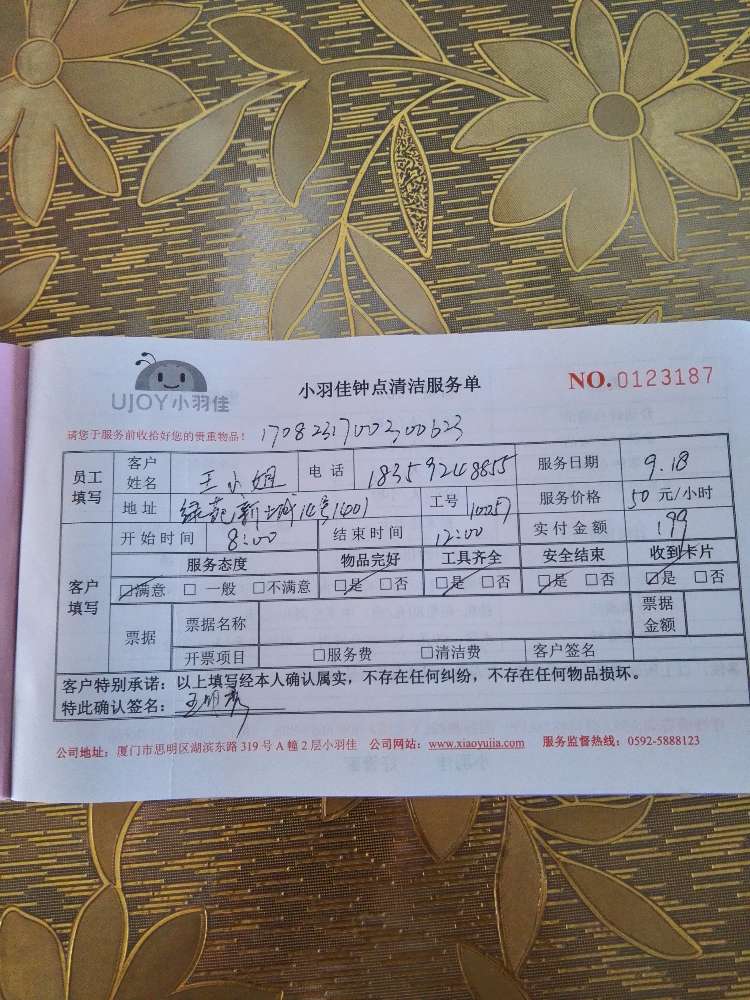 UJOY小羽佳
小羽佳钟点清洁服务单
NO.0123187
请您于服务前收拾好您的贵重物品！ 17082317002300623
员工填写 客户姓名 王小姐 电话 18359248855 服务日期 9.18
地址 绿苑新城14号1401 工号 服务价格 50元/小时
客户填写 开始时间 8:00 结束时间 12:00 实付金额 199
服务态度 物品完好 工具齐全 安全结束 收到卡片
☑满意 □一般 □不满意 ☑是 □否 ☑是 □否 ☑是 □否 ☑是 □否
票据 票据名称 票据金额
开票项目 □服务费 □清洁费 客户签名
客户特别承诺：以上填写经本人确认属实，不存在任何纠纷，不存在任何物品损坏。
特此确认签名：
公司地址：厦门市思明区湖滨东路319号A幢2层小羽佳 公司网站：www.xiaoyujia.com 服务监督热线：0592-5888123